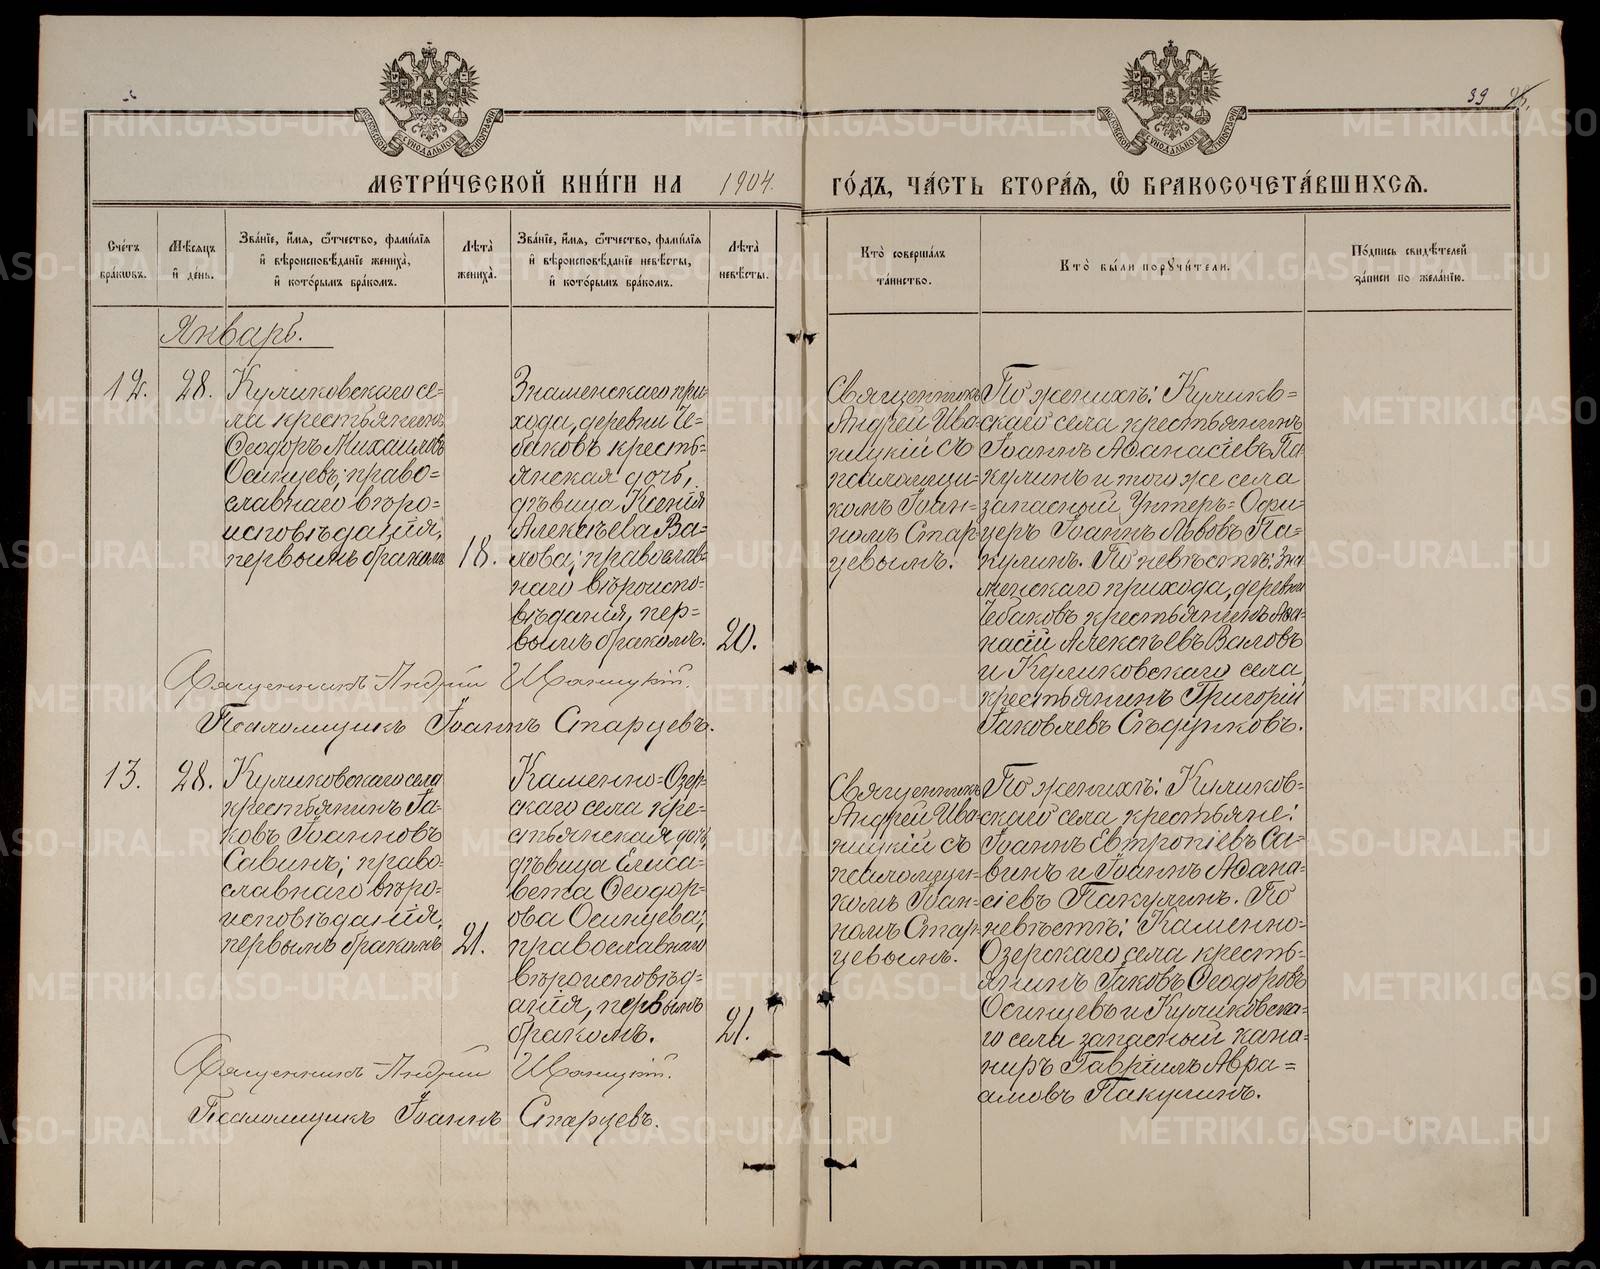 39
МЕТРИ́ЧЕСКОЙ КНИ́ГИ НА 1904. ГО́ДЪ, ЧА́СТЬ ВТОРА́Я, Ѿ БРАКОСОЧЕТА́ВШИХСЯ.
Сче́тъ бра́кωвъ.
Мѣ́сяцъ и҆ де́нь.
Зва́нїе, и҆́мя, ѻ҆́тчество, фами́лїя
и҆ вѣроисповѣ́данїе жениха̀,
и҆ кото́рымъ бра́комъ.
Лѣта̀ жениха̀.
Зва́нїе, и҆́мя, ѻ҆́тчество, фами́лїя
и҆ вѣроисповѣ́данїе невѣ́сты,
и҆ кото́рымъ бра́комъ.
Лѣта̀ невѣ́сты.
Кто̀ соверша́лъ
та́инство.
Кто̀ бы́ли порꙋчи́тели.
По́дпись свидѣ́телей
за́писи по жела́нїю.
Январь.
12.
28.
Куликовскаго се-
ла крестьянинъ
Ѳеодоръ Михаиловъ
Осинцевъ; право-
славнаго вѣро-
исповѣданія,
первымъ бракомъ
18.
Знаменскаго при-
хода, деревни Че-
баковъ кресть-
янская дочь,
дѣвица Ксенія
Алексѣева Ва-
лова; православ-
наго вѣроиспо-
вѣданія, пер-
вымъ бракомъ.
20.
Священникъ
Андрей Ива-
ницкій съ
псаломщи-
комъ Іоан-
номъ Стар-
цевымъ.
По женихѣ: Куликов-
скаго села крестьянинъ
Іоаннъ Аѳанасіевъ Па-
кулинъ и того же села
запасный Унтеръ-Офи-
церъ Іоаннъ Львовъ Па-
кулинъ. По невѣстѣ: Зна-
менскаго прихода, деревни
Чебаковъ крестьянинъ Аѳа-
насій Алексѣевъ Валовъ
и Куликовскаго села
крестьянинъ Григорій
Іаковлевъ Сѣдриковъ.
Священникъ Андрей Иваницкій.
Псаломщикъ Іоаннъ Старцевъ.
13.
28.
Куликовскаго села
крестьянинъ Іа-
ковъ Іоанновъ
Савинъ; право-
славнаго вѣро-
исповѣданія,
первымъ бракомъ
21.
Каменно-Озер-
скаго села кре-
стьянская дочь,
дѣвица Елиса-
вета Ѳеодор-
ова Осинцева;
православнаго
вѣроисповѣд-
анія, первымъ
бракомъ.
21.
Священникъ
Андрей Ива-
ницкій съ
псаломщи-
комъ Іоан-
номъ Стар-
цевымъ.
По женихѣ: Куликов-
скаго села крестьяне:
Іоаннъ Евтропіевъ Са-
винъ и Іоаннъ Аѳана-
сіевъ Пакулинъ. По
невѣстѣ: Каменно-
Озерскаго села кресть-
янинъ Іаковъ Ѳеодоровъ
Осинцевъ и Куликовска-
го села запасный кано-
ниръ Гавріилъ Авра-
амовъ Пакулинъ.
Священникъ Андрей Иваницкій.
Псаломщикъ Іоаннъ Старцевъ.
METRIKI.GASO-URAL.RU